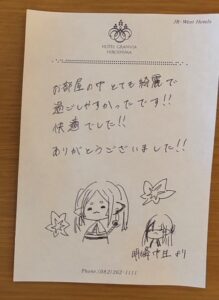 JR-West Hotels
HOTEL GRANVIA
HIROSHIMA
お部屋の中とても綺麗で
過ごしやすかったです!!
快適でした!!
ありがとうございました!!
より
Phone:(082)262-1111